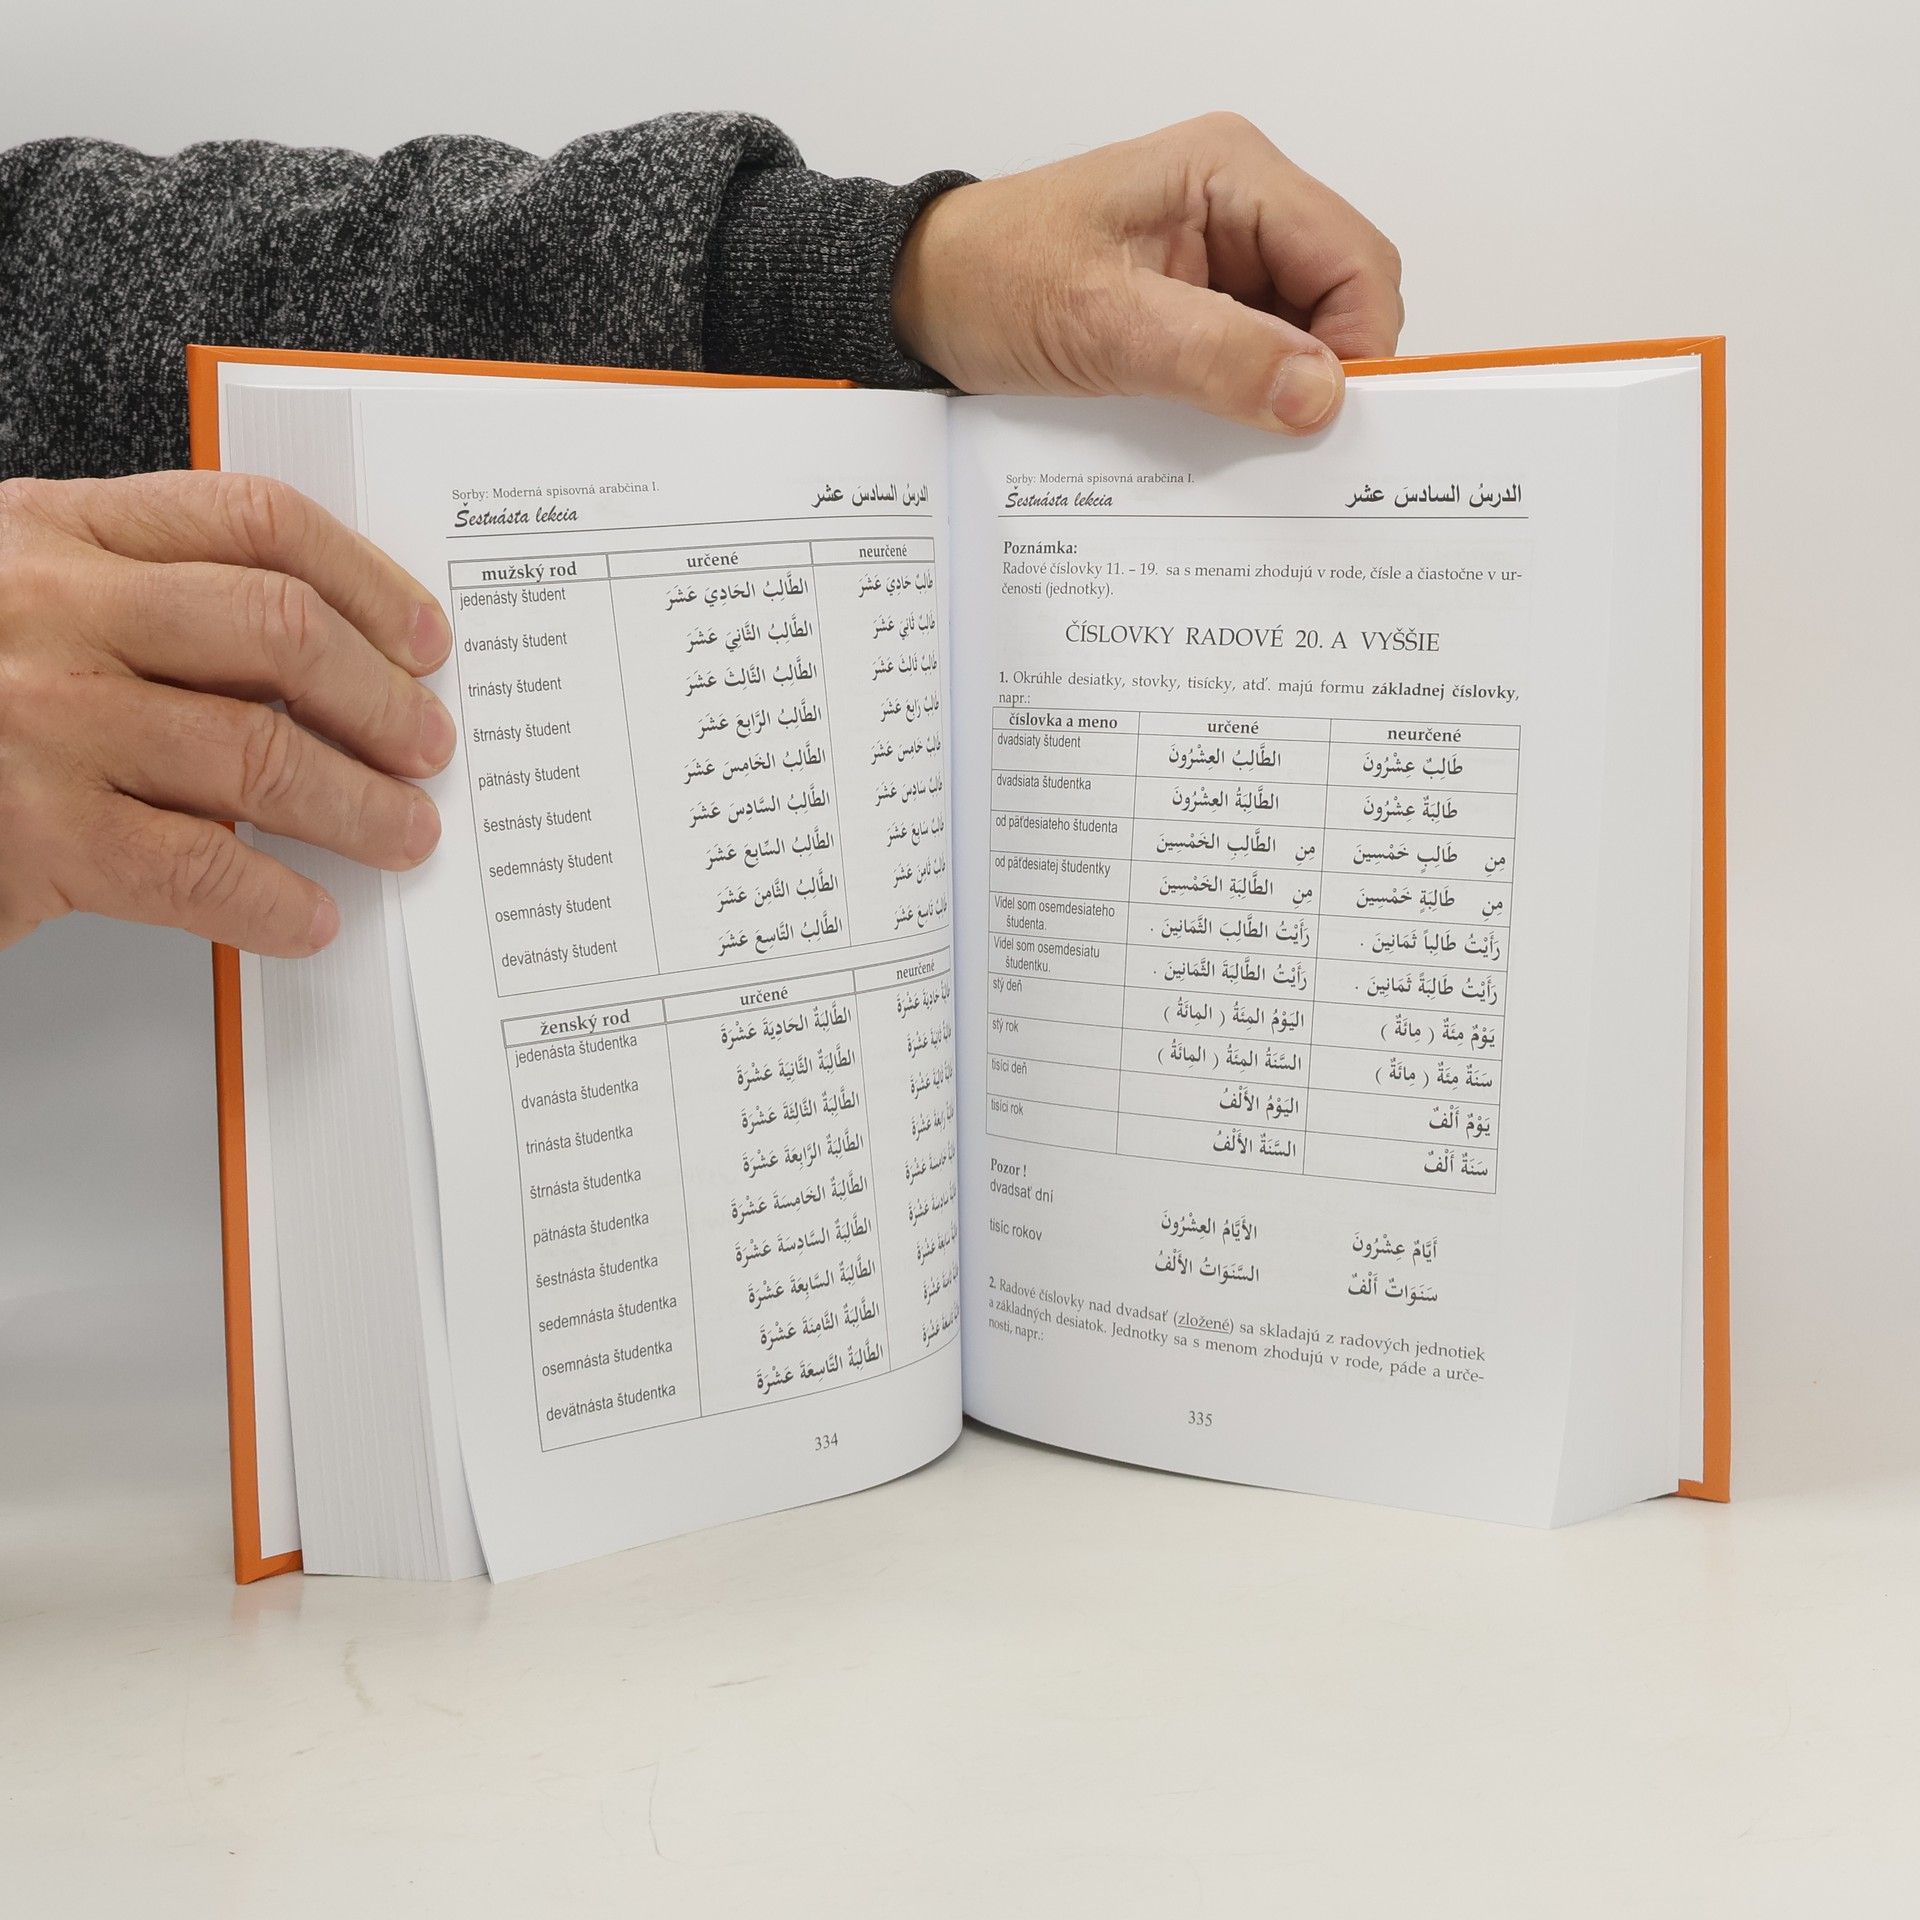 Sorby: Moderná spisovná arabčina I.
Šestnásta lekcia الدرسُ السادسَ عشر
mužský rod určené neurčené
jedenásty študent الطَّالِبُ الحَادِيَ عَشَرَ طَالِبٌ حَادِيَ عَشَرَ
dvanásty študent الطَّالِبُ الثَّانِيَ عَشَرَ طَالِبٌ ثَانِيَ عَشَرَ
trinásty študent الطَّالِبُ الثَّالِثَ عَشَرَ طَالِبٌ ثَالِثَ عَشَرَ
štrnásty študent الطَّالِبُ الرَّابِعَ عَشَرَ طَالِبٌ رَابِعَ عَشَرَ
pätnásty študent الطَّالِبُ الخَامِسَ عَشَرَ طَالِبٌ خَامِسَ عَشَرَ
šestnásty študent الطَّالِبُ السَّادِسَ عَشَرَ طَالِبٌ سَادِسَ عَشَرَ
sedemnásty študent الطَّالِبُ السَّابِعَ عَشَرَ طَالِبٌ سَابِعَ عَشَرَ
osemnásty študent الطَّالِبُ الثَّامِنَ عَشَرَ طَالِبٌ ثَامِنَ عَشَرَ
devätnásty študent الطَّالِبُ التَّاسِعَ عَشَرَ طَالِبٌ تَاسِعَ عَشَرَ
ženský rod určené neurčené
jedenásta študentka الطَّالِبَةُ الحَادِيَةَ عَشْرَةَ حَادِيَةَ عَشْرَةَ
dvanásta študentka الطَّالِبَةُ الثَّانِيَةَ عَشْرَةَ ثَانِيَةَ عَشْرَةَ
trinásta študentka الطَّالِبَةُ الثَّالِثَةَ عَشْرَةَ ثَالِثَةَ عَشْرَةَ
štrnásta študentka الطَّالِبَةُ الرَّابِعَةَ عَشْرَةَ رَابِعَةَ عَشْرَةَ
pätnásta študentka الطَّالِبَةُ الخَامِسَةَ عَشْرَةَ خَامِسَةَ عَشْرَةَ
šestnásta študentka الطَّالِبَةُ السَّادِسَةَ عَشْرَةَ سَادِسَةَ عَشْرَةَ
sedemnásta študentka الطَّالِبَةُ السَّابِعَةَ عَشْرَةَ سَابِعَةَ عَشْرَةَ
osemnásta študentka الطَّالِبَةُ الثَّامِنَةَ عَشْرَةَ ثَامِنَةَ عَشْرَةَ
devätnásta študentka الطَّالِبَةُ التَّاسِعَةَ عَشْرَةَ تَاسِعَةَ عَشْرَةَ
334
Sorby: Moderná spisovná arabčina I.
Šestnásta lekcia الدرسُ السادسَ عشر
Poznámka:
Radové číslovky 11. – 19. sa s menami zhodujú v rode, čísle a čiastočne v ur-
čenosti (jednotky).
ČÍSLOVKY RADOVÉ 20. A VYŠŠIE
1. Okrúhle desiatky, stovky, tisícky, atď. majú formu základnej číslovky,
napr.:
číslovka a meno určené neurčené
dvadsiaty študent الطَّالِبُ العِشْرُونَ طَالِبٌ عِشْرُونَ
dvadsiata študentka الطَّالِبَةُ العِشْرُونَ طَالِبَةٌ عِشْرُونَ
od päťdesiateho študenta مِنِ الطَّالِبِ الخَمْسِينَ مِنِ طَالِبٍ خَمْسِينَ
od päťdesiatej študentky مِنِ الطَّالِبَةِ الخَمْسِينَ مِنِ طَالِبَةٍ خَمْسِينَ
Videl som osemdesiateho
študenta. رَأَيْتُ الطَّالِبَ الثَّمَانِينَ . رَأَيْتُ طَالِباً ثَمَانِينَ .
Videl som osemdesiatu
študentku. رَأَيْتُ الطَّالِبَةَ الثَّمَانِينَ . رَأَيْتُ طَالِبَةً ثَمَانِينَ .
stý deň اليَوْمُ المِئَةُ ( المِائَةُ ) يَوْمٌ مِئَةٌ ( مِائَةٌ )
stý rok السَّنَةُ المِئَةُ ( المِائَةُ ) سَنَةٌ مِئَةٌ ( مِائَةٌ )
tisíci deň اليَوْمُ الأَلْفُ يَوْمٌ أَلْفٌ
tisíci rok السَّنَةُ الأَلْفُ سَنَةٌ أَلْفٌ
Pozor !
dvadsať dní الأَيَّامُ العِشْرُونَ أَيَّامٌ عِشْرُونَ
tisíc rokov السَّنَوَاتُ الأَلْفُ سَنَوَاتٌ أَلْفٌ
2. Radové číslovky nad dvadsať (zložené) sa skladajú z radových jednotiek
a základných desiatok. Jednotky sa s menom zhodujú v rode, páde a urče-
nosti, napr.:
335